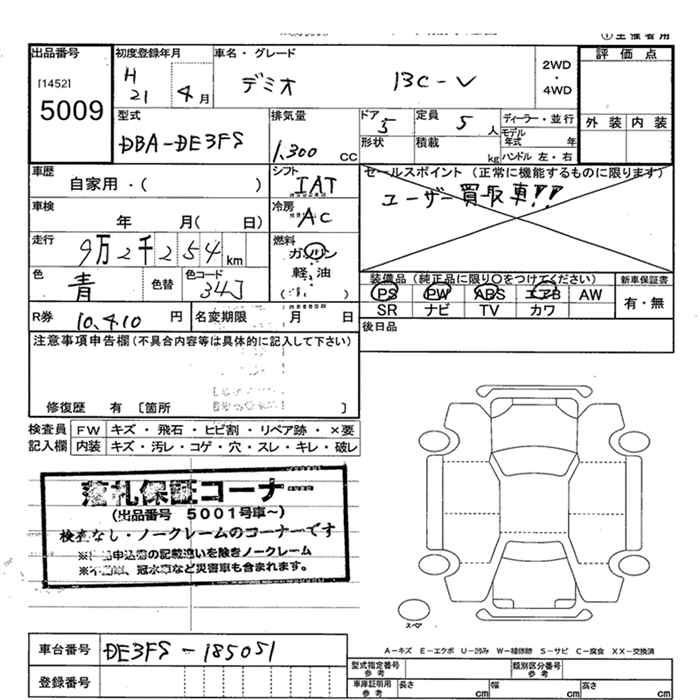 ①主催者用
出品番号 初度登録年月 車名・グレード
[1452]
5009
H 21 4月
デミオ 13C-V
2WD
・
4WD
評価点
外装 内装
型式
DBA-DE3FS
排気量
1,300 CC
ドア 5
形状
定員 5 人
積載 kg
ディーラー・並行
モデル年式 年
ハンドル 左・右
車歴
自家用・( )
シフト IAT
セールスポイント (正常に機能するものに限ります)
ユーザー買取車!!
車検
年 月( 日)
冷房 AC
走行
9万2千254km
燃料
ガソリン
軽油
色 青 色替 色コード 34J
装備品(純正品に限り○をつけてください) 新車保証書
PS PW ABS エアB AW
SR ナビ TV カワ
有・無
R券 10,410 円 名変期限 月 日
後日品
注意事項申告欄(不具合内容等は具体的に記入して下さい)
修復歴 有 [箇所 ]
検査員記入欄
FW キズ・飛石・ヒビ割・リペア跡・×要
内装 キズ・汚レ・コゲ・穴・スレ・キレ・破レ
落札保証コーナー
(出品番号 5001号車~)
検査なし・ノークレームのコーナーです
申込書の記載違いを除きノークレーム
冠水車など災害車も含まれます。
スペア
車台番号 DE3FS-185051
登録番号
A-キズ E-エクボ U-凹み W-補修跡 S-サビ C-腐食 XX-交換済
型式指定番号 参考 類別区分番号 参考
車庫証明用 参考 長さ cm 幅 cm 高さ cm